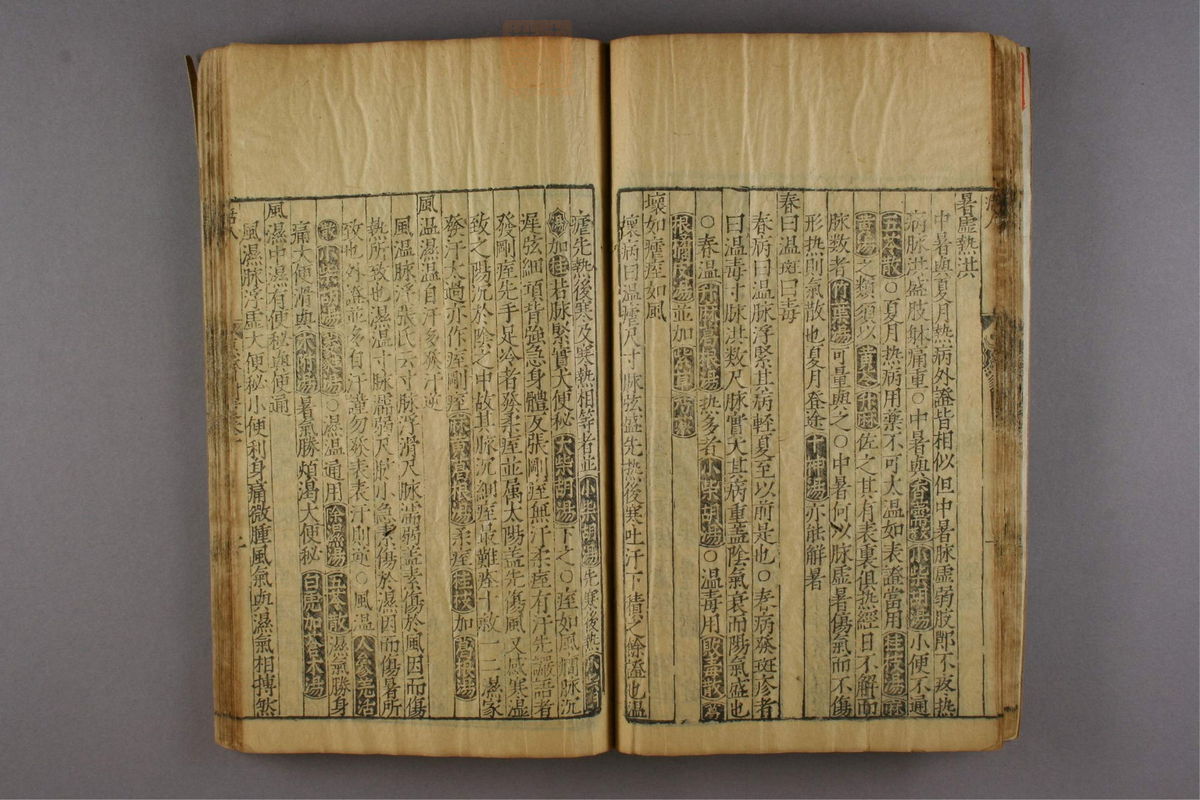 暑虛熱洪
中暑與夏月熱病外證皆相似但中暑脉虛弱肢節不疼熱
病脉洪盛肢躰痛重○中暑與香薷散小柴胡湯小便不通
五苓散○夏月热病用藥不可太温如表證當用桂枝湯麻
黄湯之類須以黄芩升麻佐之其有表裏俱热經日不解而
脉数者竹葉湯可量與之○中暑何以脉虛暑傷氣而不傷
形热則氣散也夏月登途十神湯亦能解暑
春曰温斑曰毒
春病曰温脉浮緊其病輕夏至以前是也○春病發斑疹者
曰温毒寸脉洪数尺脉實大其病重蓋陰氣衰而陽氣盛也
○春温升麻葛根湯热多者小柴胡湯○温毒用敗毒散葛
根橘皮湯並加紫草
壞如瘧痓如風
壞病曰温瘧尺寸脉弦盛先热後寒吐汗下積久餘證也温
瘧先熱後寒及寒熱相等者並小柴胡湯先寒後热小柴胡
湯加桂若脉緊實大便秘大柴胡湯下之○痓如風癇脉沉
遲弦細項背強急身體反張剛痓無汗柔痓有汗先譫語者
發剛痓先手足冷者發柔痓並属太陽蓋先傷風又感寒濕
致之陽沉於陰之中故其脉沉細痓最難療十救一二濕家
發汗太過亦作痓剛痓麻黄葛根湯柔痓桂枝加葛根湯
風温濕温自汗多發汗逆
風温脉浮張氏云寸脉浮滑尺脉濡弱蓋素傷於風因而傷
热所致也濕温寸脉濡弱尺脉小急素傷於濕因而傷暑所
致也外證並多自汗謹勿發表表汗則逆○風温人参羌活
散小柴胡湯○濕温通用除濕湯五苓散濕氣勝身
痛大便滑與术附湯暑氣勝煩渴大便秘白虎加蒼术湯
風濕中濕有便秘與便通
風濕脉浮虛大便秘小便利身痛微腫風氣與濕氣相搏然